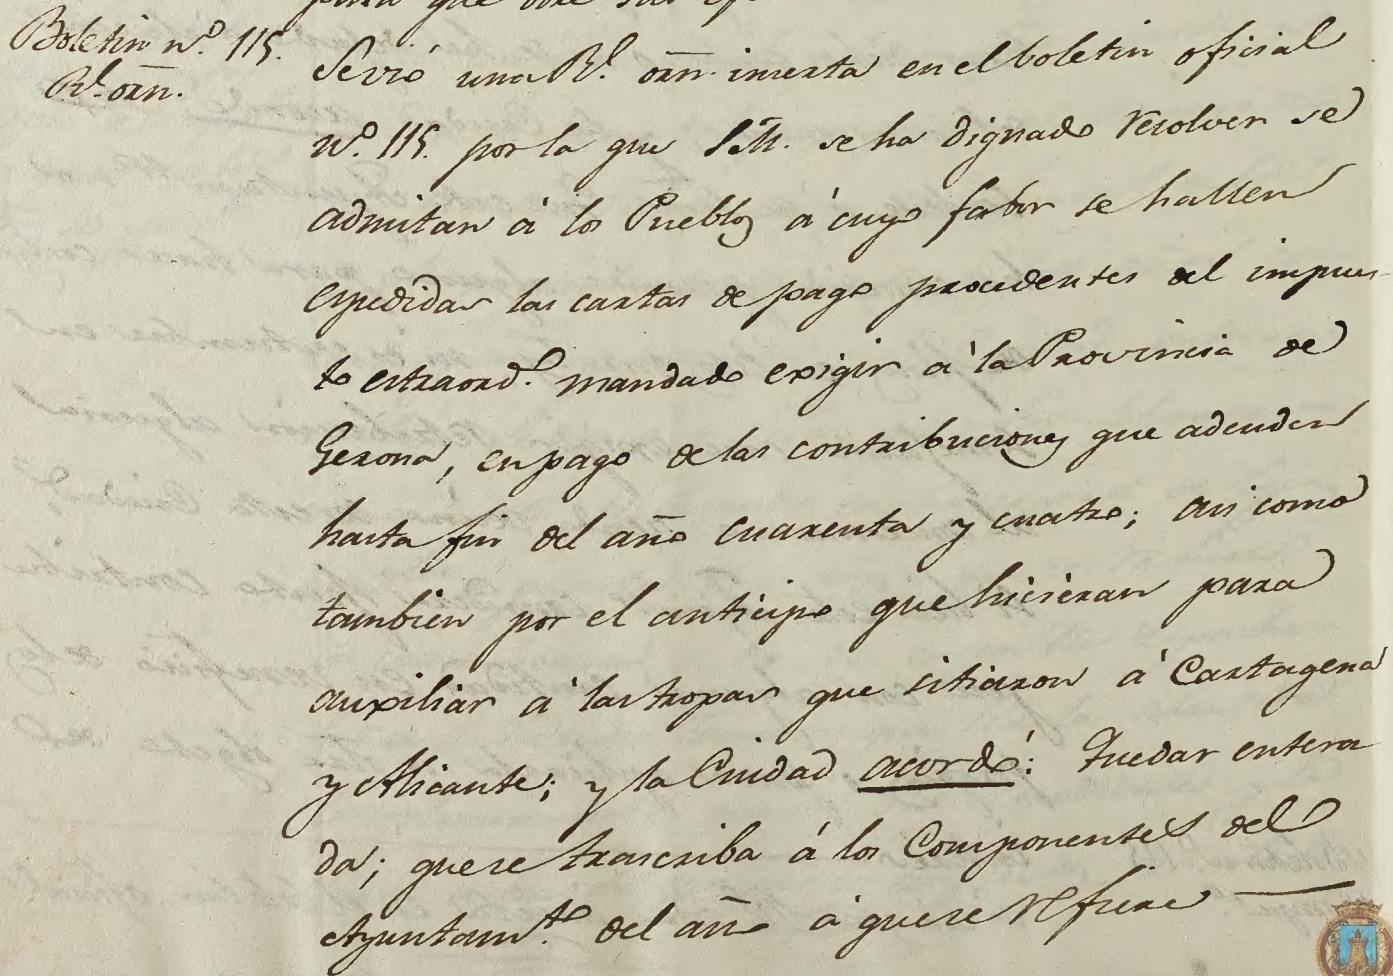 Boletin nº. 115.
Rl. orñ.
para que obre sus
Se vió una Rl. orñ. inserta en el boletin oficial
nº. 115. por la que S.M. se ha dignado resolver se
admitan á los Pueblos á cuyo fabor se hallen
espedidas las cartas de pago procedentes del impues-
to estraord.º mandado exigir á la Provincia de
Gerona, en pago de las contribuciones que adeuden
hasta fin del año cuarenta y cuatro; asi como
tambien por el anticipo que hicieran para
auxiliar á las tropas que sitiaron á Cartagena
y Alicante; y la Ciudad acordó: Quedar entera
da; que se trascriba á los Componentes del
Ayuntam.to del año á que se refiere